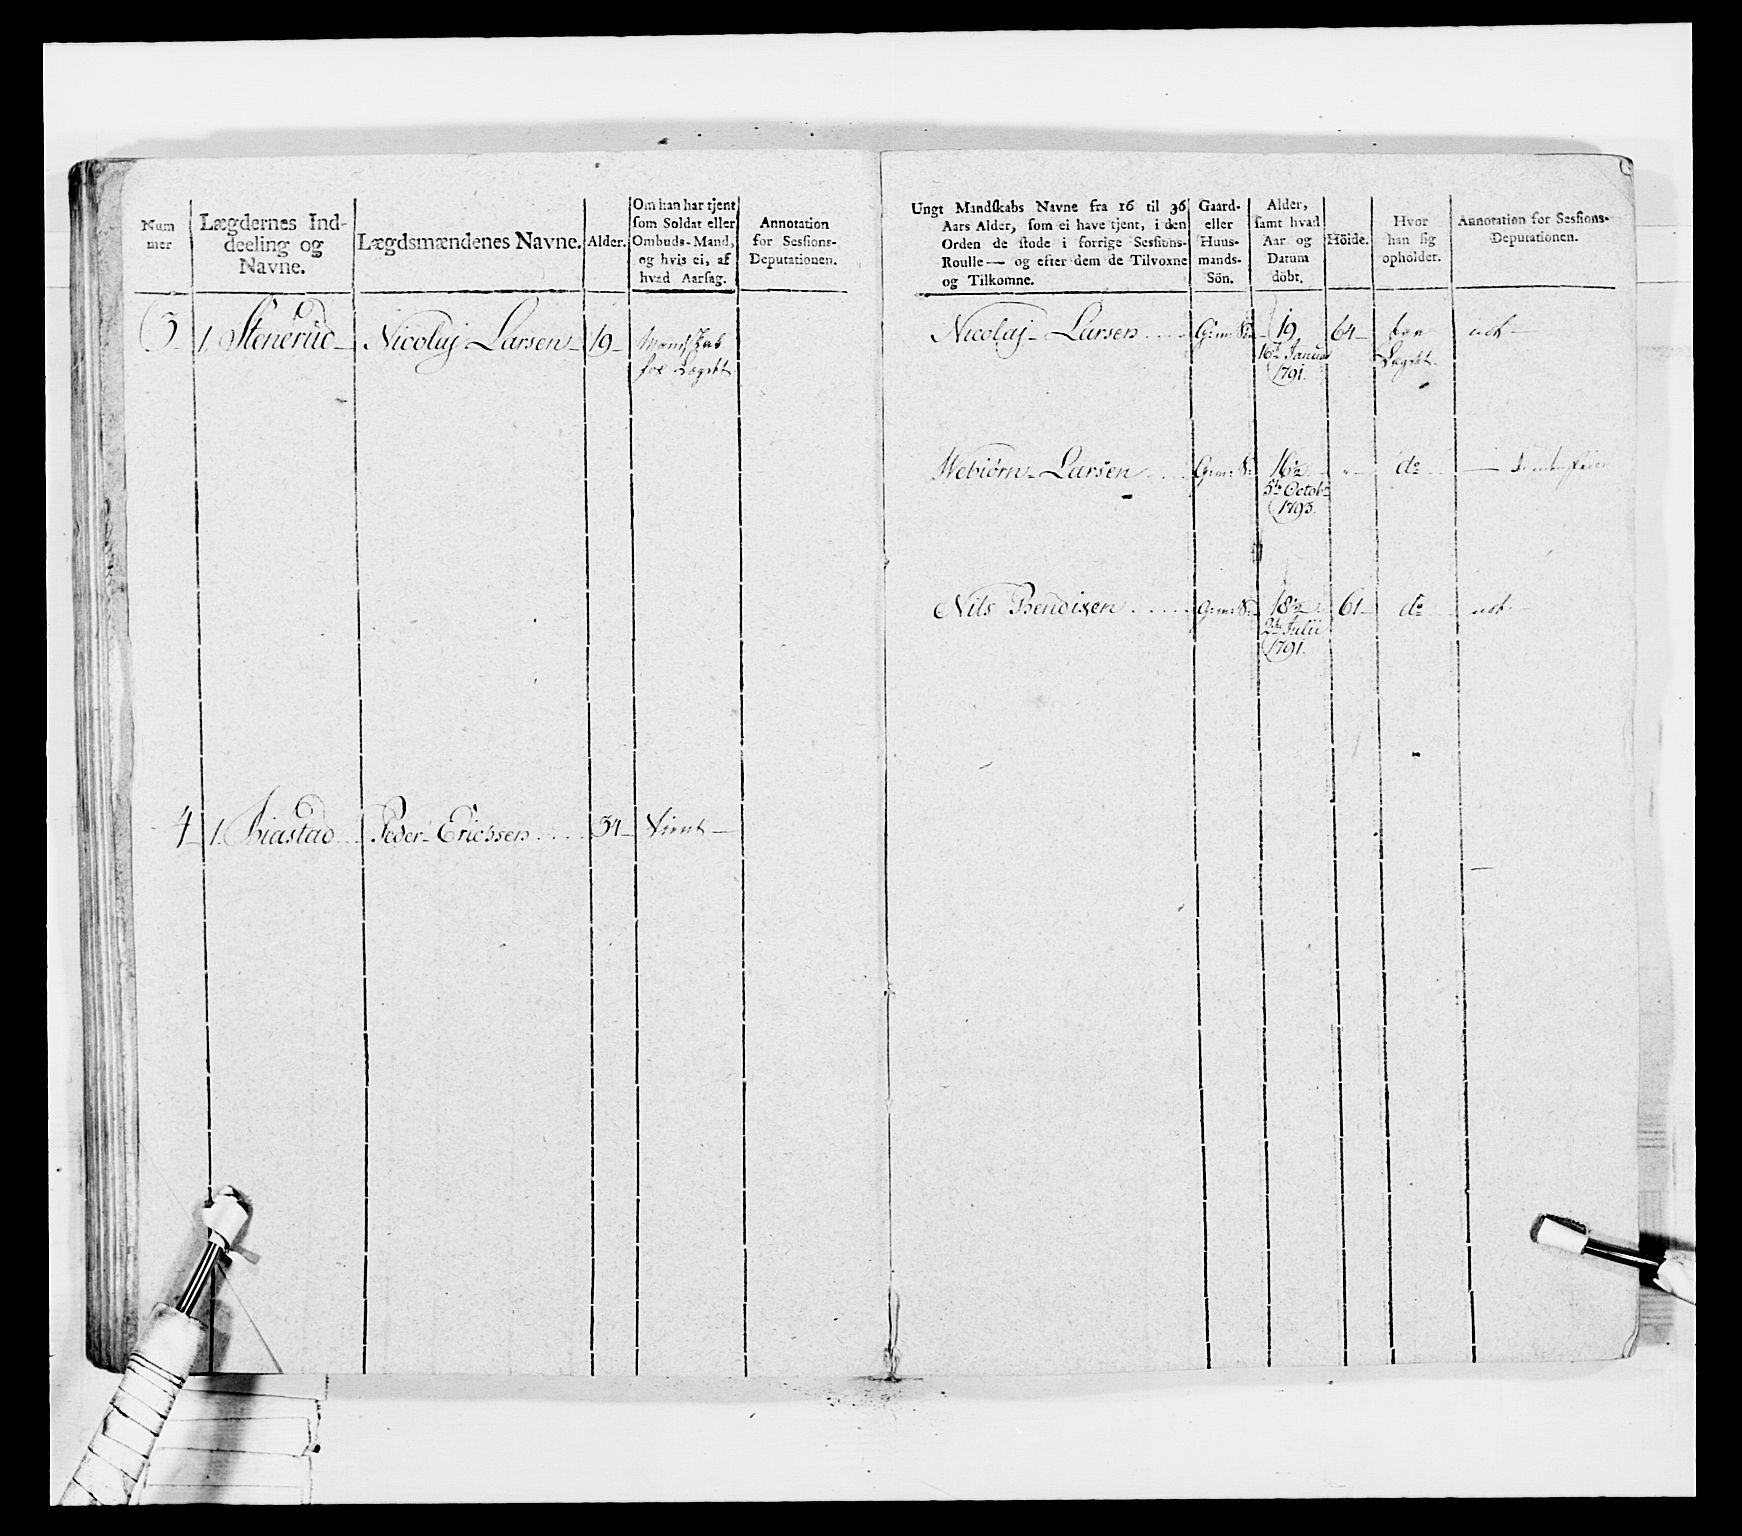 Num
mer
Lægdernes Ind-
deeling og
Navne.
Lægdsmændenes Navne.
Alder.
Om han har tjent
som Soldat eller
Ombuds-Mand,
og hvis ei, af
hvad Aarsag.
Annotation
for Sessions-
Deputationen.
3 1. Stenerud Nicolaj Larsen 19 Mandskab
for Lægdet
4 1. Peder Erichsen 34 tient
Ungt Mandskabs Navne fra 16 til 36
Aars Alder, som ei have tjent, i den
Orden de stode i forrige Sessions-
Roulle — og efter dem de Tilvoxne
og Tilkomne.
Gaard-
eller
Huus-
mands-
Sön.
Alder,
samt hvad
Aar og
Datum
döbt.
Höide.
Hvor
han sig
opholder.
Annotation for Sessions-
Deputationen.
Nicolaj Larsen G:m: S: 19 64
16de Januar Lægdet
1791.
Webiörn Larsen G:m: S: 16½ " do
5te Octobr
1793.
Nils Bendixen G:m: S: 18½ 61 do
Julii
1791.